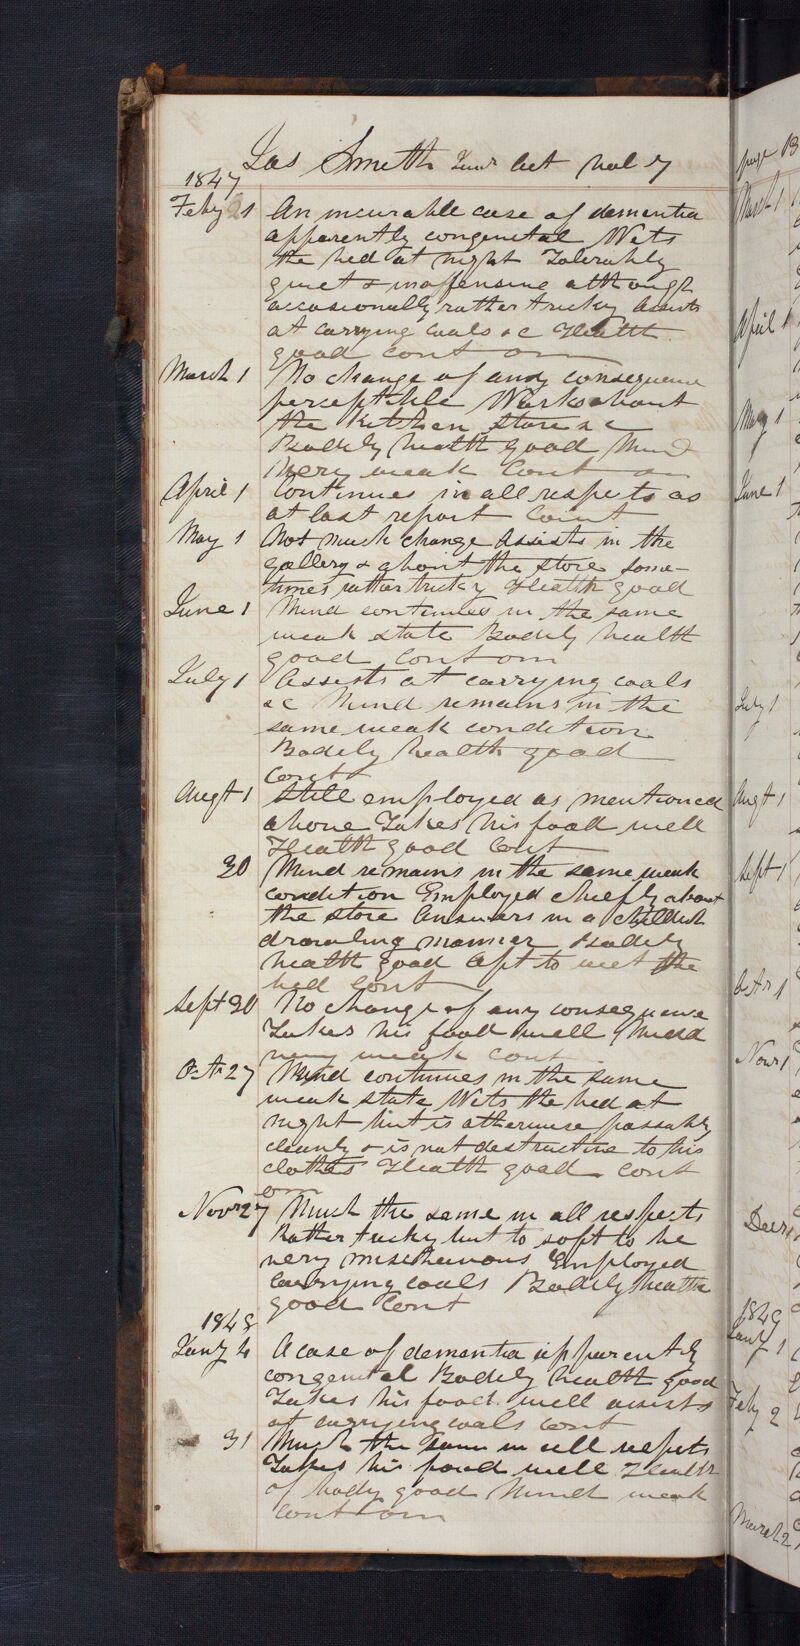 Jas Smith Junr aet vol 7
1847
Feby 1 An incurable case of dementia
apparently congenital Wets
the bed at night Tolerably
quiet & inoffensive although
occasionally rather tricky Assists
at carrying coals &c Health
good cont om
March 1 No change of any consequence
perceptible Works about
the Kitchen Store &c
Bodily health good Mind
very weak Cont
April 1 Continues in all respects as
at last report Cont
May 1 Not much change Assists in the
gallery & about the store Some-
times rather tricky Health good
June 1 Mind continues in the same
weak state Bodily health
good Cont om
July 1 Assists at carrying coals
&c Mind remains in the
same weak condition
Bodily health good
Cont
Augt 1 Still employed as mentioned
above Takes his food well
Health good Cont
30 Mind remains in the same weak
condition Employed chiefly about
the store Answers in a childish
drawling manner Bodily
health good Apt to wet the
bed Cont
Sept 30 No change of any consequence
Takes his food well Mind
very weak cont
Octr 27 Mind continues in the same
weak state Wets the bed at
night but is otherwise passably
cleanly & is not destructive to his
clothes Health good Cont
om
Novr 27 Much the same in all respects
Rather tricky but to soft to be
very mischievous Employed
carrying coals Bodily health
good Cont
1848
Jany 4 A case of dementia apparently
congenital Bodily health good
Takes his food well assists
at carrying coals cont
31 Much the same in all respects
Takes his food well Health
of body good Mind weak
Cont om
page 13
March 1
April 1
May 1
June 1
July 1
Augt 1
Sept 1
Octr 1
Novr 1
Decr 1
1849
Jany 1
Feby 2
March 2